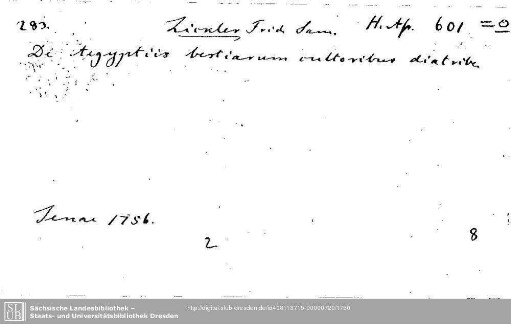 283. Zickler Frid. Sam. H. Ap. 601 = 0
De Aegyptiis bestiarum cultoribus diatribe
Jenae 1756.
2 8
SLUB Sächsische Landesbibliothek –
Staats- und Universitätsbibliothek Dresden